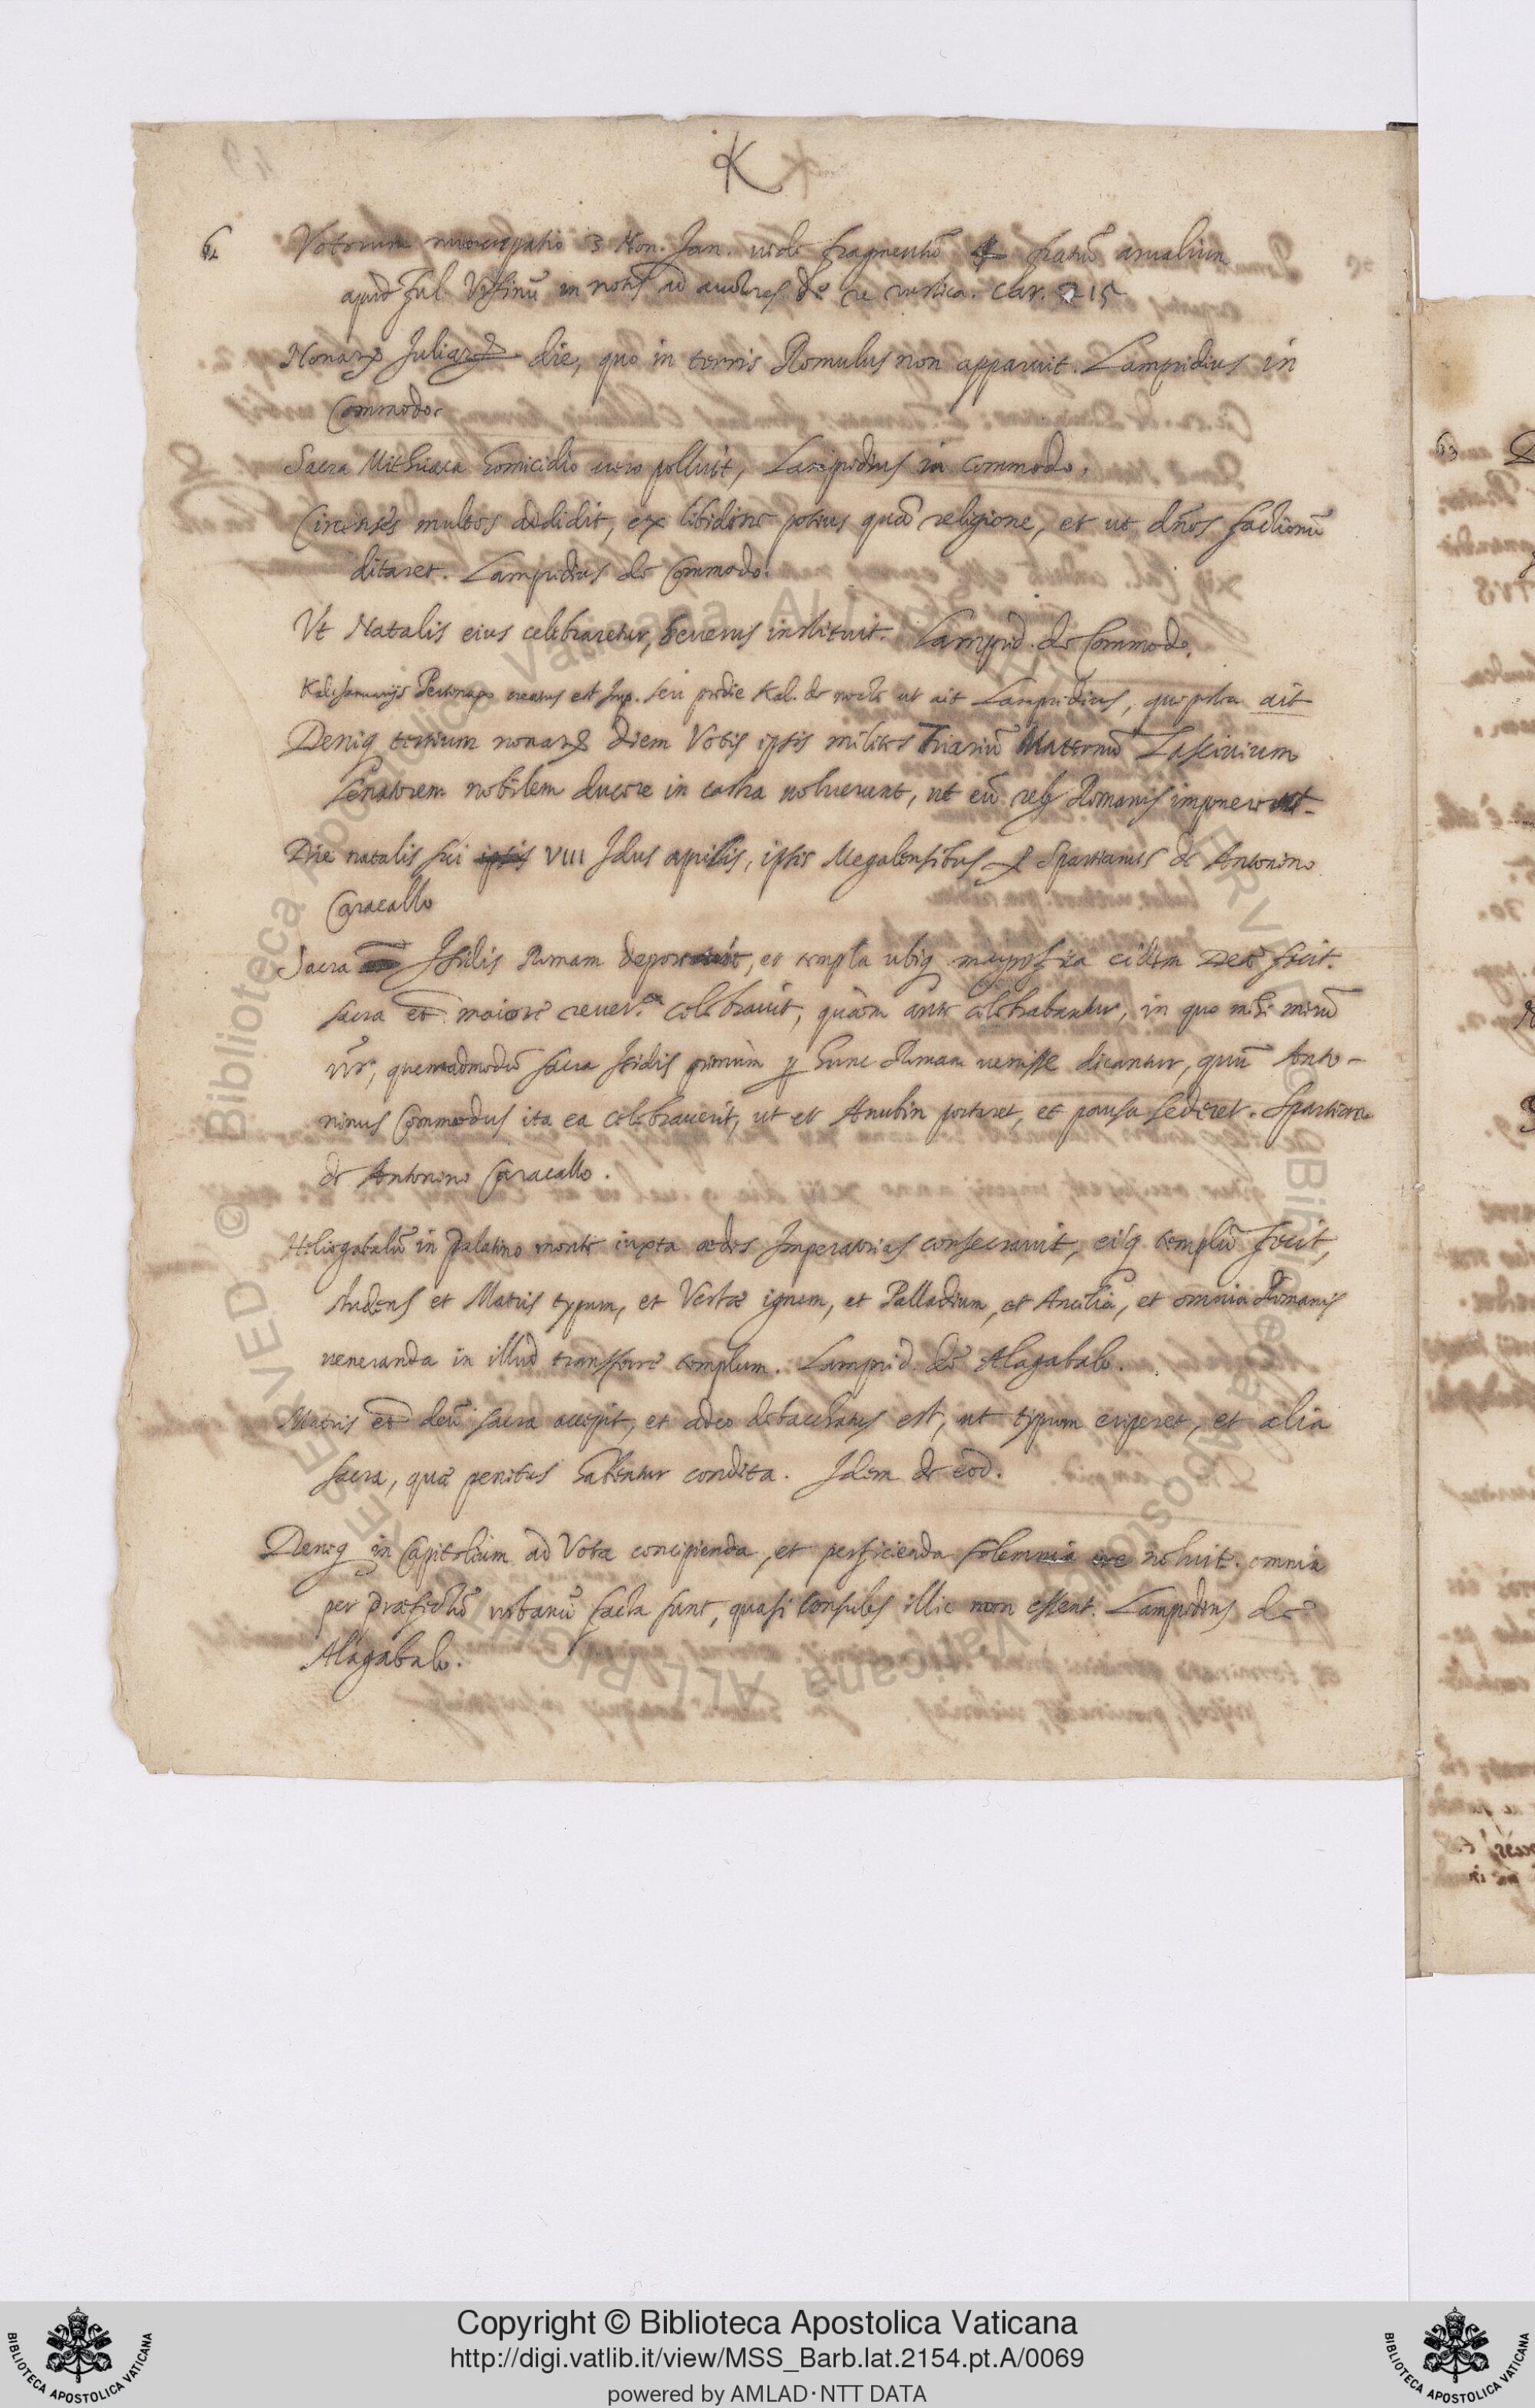 K
Votorum nuncupatio 3 Non. Jan. vide fragmentũ fratrũ arvalium
apud Ful. Vrsinũ in notis ad auctores de re rustica. car. 215
Nonarꝝ Juliarꝝ die, quo in terris Romulus non apparuit. Lampridius in
Commodo.
Sacra Mithriaca homicidio uero polluit, Lampridius in Commodo.
Circenses multos addidit, ex libidine potius quã religione, et ut dños factionũ
ditaret. Lampridius de Commodo.
Vt Natalis eius celebraretur, Seuerus instituit. Lamprid. de Commodo.
Kal. Januarijs Pertinax creatus est Imp. seu pridie Kal. de nocte ut ait Lampridius, qui postea ait
Deniq tertium nonarꝝ diem Votis ipsis milites Triariũ Maternũ Lasciuium
senatorem nobilem ducere in castra uoluerunt, ut eũ reb Romanis imponerent.
Die natalis sui ipsis VIII Idus aprilis, ipsis Megalensibus Spartianus de Antonino
Caracallo
Sacra Isidis Romam deportauit, et templa ubiq magnifica eidem Deæ fecit.
sacra et maiore reuer.ª celebrauit, quàm ante celebrabantur, in quo mihi mirũ
vr, quemadmodũ sacra Isidis primùm p hunc Romam uenisse dicantur, quũ Anto-
ninus Commodus ita ea celebrauerit, ut et Anubin portaret, et pausas ederet. Spartian
de Antonino Caracallo.
Heliogabalũ in Palatino monte iuxta ædes Imperatorias consecrauit, eiq templũ fecit,
studens et Matris typum, et Vestæ ignem, et Palladium, et Ancilia, et omnia Romanis
ueneranda in illud transferre templum. Lamprid. de Alagabalo.
Matris et deũ sacra accepit, et adeo debacchatus est, ut typum eriperet, et alia
sacra, quæ penitus habentur condita. Idem de eod.
Deniq in Capitolium ad Vota concipienda, et perficienda solemnia ire noluit. omnia
per præfectũ urbanũ facta sunt, quasi Consules illic non essent. Lampridius de
Alagabalo.
63
© Biblioteca Apostolica Vaticana ALL RIGHTS RESERVED
Copyright © Biblioteca Apostolica Vaticana
http://digi.vatlib.it/view/MSS_Barb.lat.2154.pt.A/0069
powered by AMLAD·NTT DATA
BIBLIOTECA APOSTOLICA VATICANA
BIBLIOTECA APOSTOLICA VATICANA